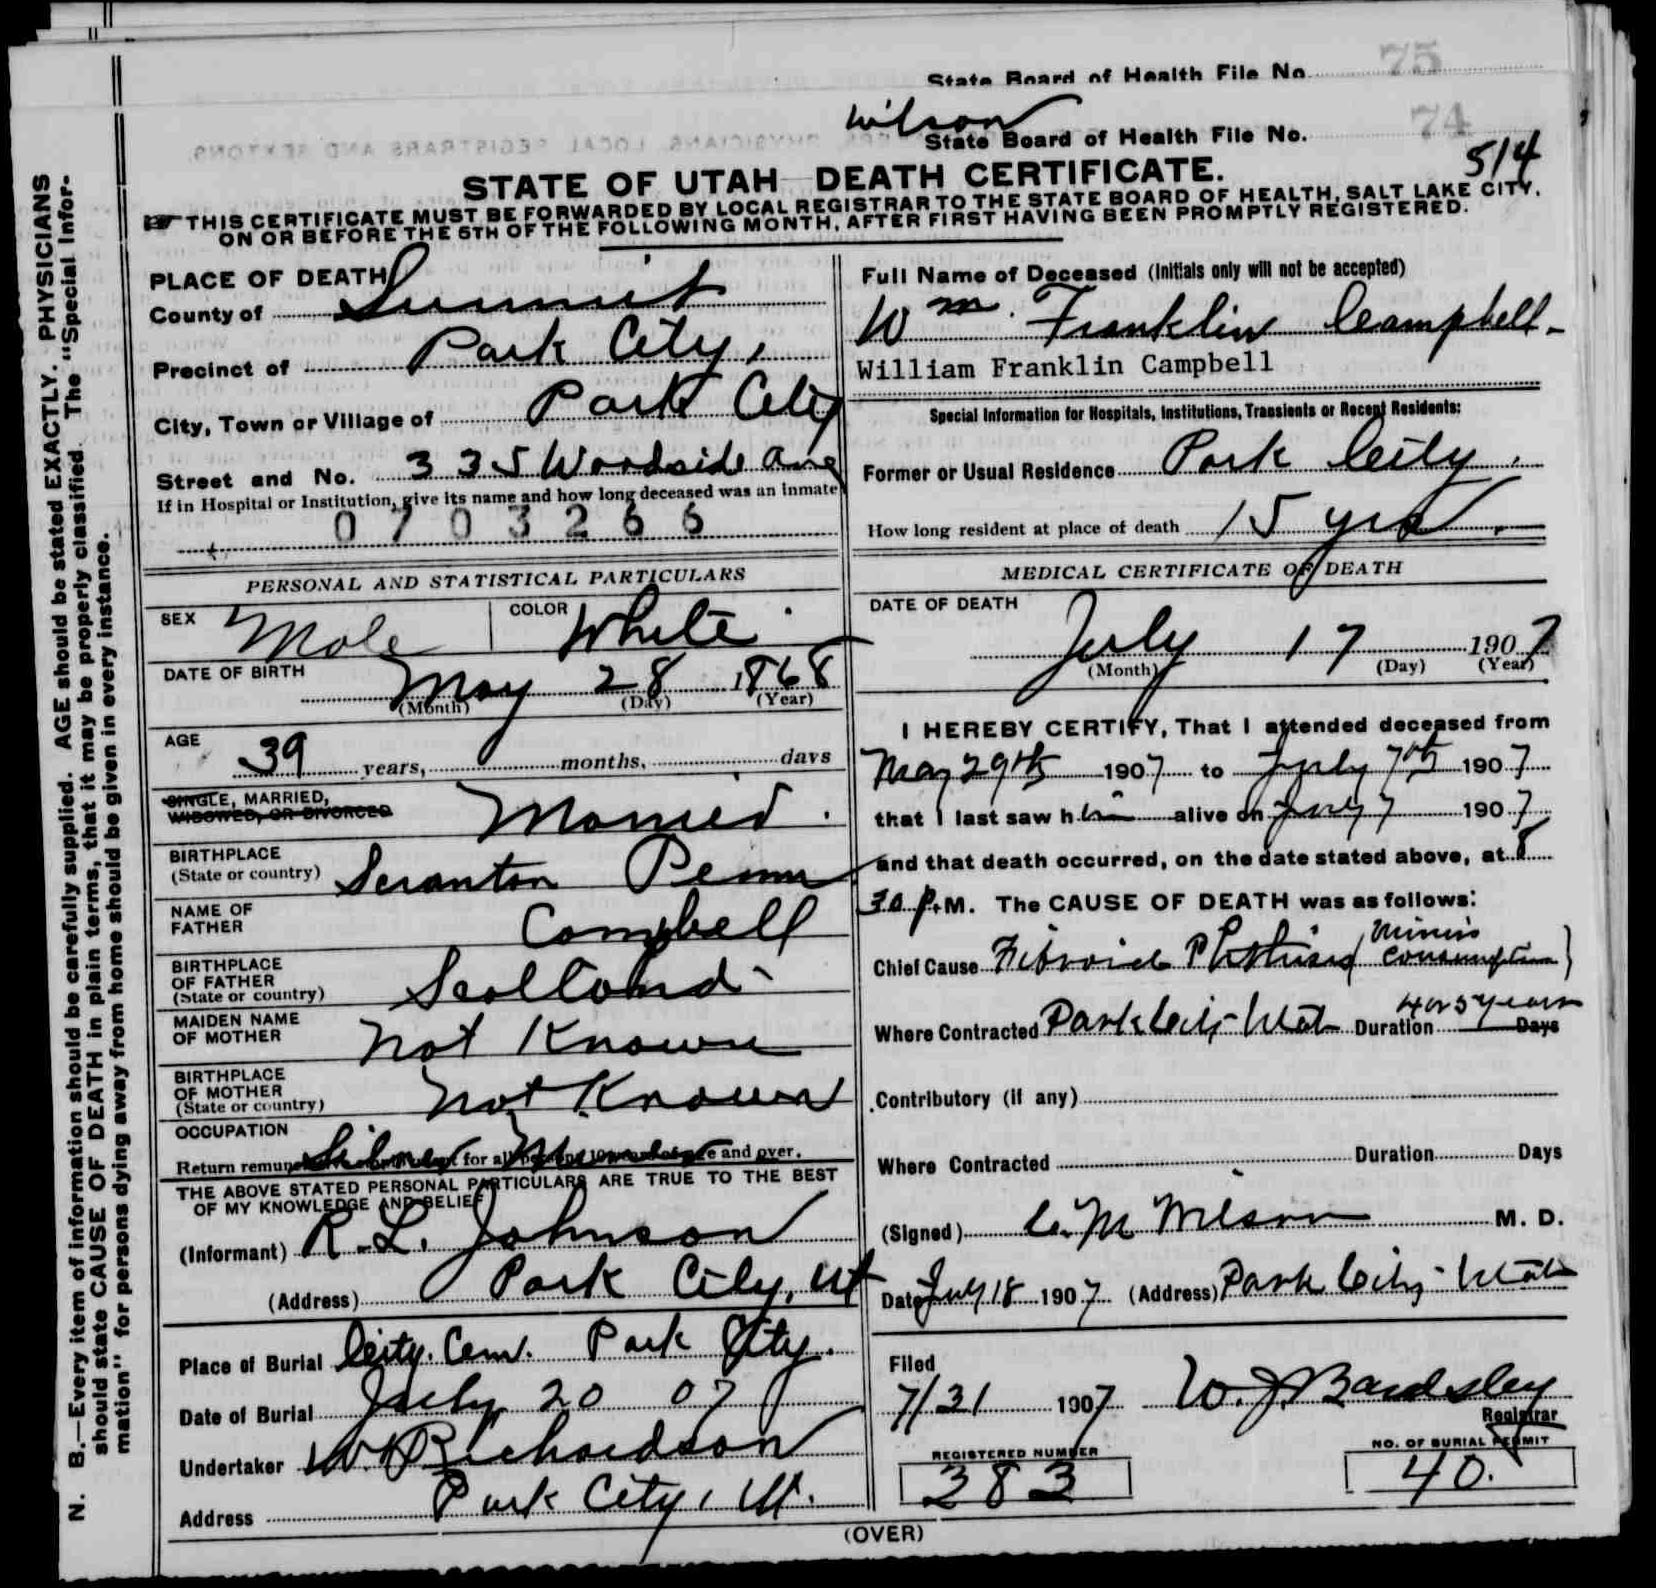 State Board of Health File No. 75
Wilson
State Board of Health File No. 74
514
STATE OF UTAH DEATH CERTIFICATE.
THIS CERTIFICATE MUST BE FORWARDED BY LOCAL REGISTRAR TO THE STATE BOARD OF HEALTH, SALT LAKE CITY,
ON OR BEFORE THE 5TH OF THE FOLLOWING MONTH, AFTER FIRST HAVING BEEN PROMPTLY REGISTERED.
N. B.—Every item of information should be carefully supplied. AGE should be stated EXACTLY. PHYSICIANS
should state CAUSE OF DEATH in plain terms, that it may be properly classified. The "Special Infor-
mation" for persons dying away from home should be given in every instance.
PLACE OF DEATH
County of Summit
Precinct of Park City,
City, Town or Village of Park City
Street and No. 335 Woodside Ave
If in Hospital or Institution, give its name and how long deceased was an inmate
0703266
PERSONAL AND STATISTICAL PARTICULARS
SEX Male COLOR White
DATE OF BIRTH May 28 1868
(Month) (Day) (Year)
AGE 39 years, months, days
SINGLE, MARRIED,
WIDOWED, OR DIVORCED Married.
BIRTHPLACE
(State or country) Scranton Penn
NAME OF
FATHER Campbell
BIRTHPLACE
OF FATHER
(State or country) Scotland
MAIDEN NAME
OF MOTHER Not Known
BIRTHPLACE
OF MOTHER
(State or country) Not Known
OCCUPATION
Return remun for all and over.
THE ABOVE STATED PERSONAL PARTICULARS ARE TRUE TO THE BEST
OF MY KNOWLEDGE AND BELIEF
(Informant) R. L. Johnson
(Address) Park City, Ut
Place of Burial City. Cem. Park City.
Date of Burial July 20 07
Undertaker W. Richardson
Address Park City, Ut.
Full Name of Deceased (Initials only will not be accepted)
Wm. Franklin Campbell
William Franklin Campbell
Special Information for Hospitals, Institutions, Transients or Recent Residents:
Former or Usual Residence Park City.
How long resident at place of death 15 yrs.
MEDICAL CERTIFICATE OF DEATH
DATE OF DEATH
July 17 1907
(Month) (Day) (Year)
I HEREBY CERTIFY, That I attended deceased from
May 29th 1907 to July 7th 1907
that I last saw him alive on July 7 1907
and that death occurred, on the date stated above, at 8
30 P.M. The CAUSE OF DEATH was as follows:
Chief Cause Fibroid Phthisis Miners Consumption)
Where Contracted Park City Utah Duration 4 or 5 years Days
Contributory (if any)
Where Contracted Duration Days
(Signed) C. M Wilson M. D.
Date July 18 1907 (Address) Park City Utah
Filed
7/31 1907 W. J. Bardsley
Registrar
REGISTERED NUMBER
383
NO. OF BURIAL PERMIT
40.
(OVER)